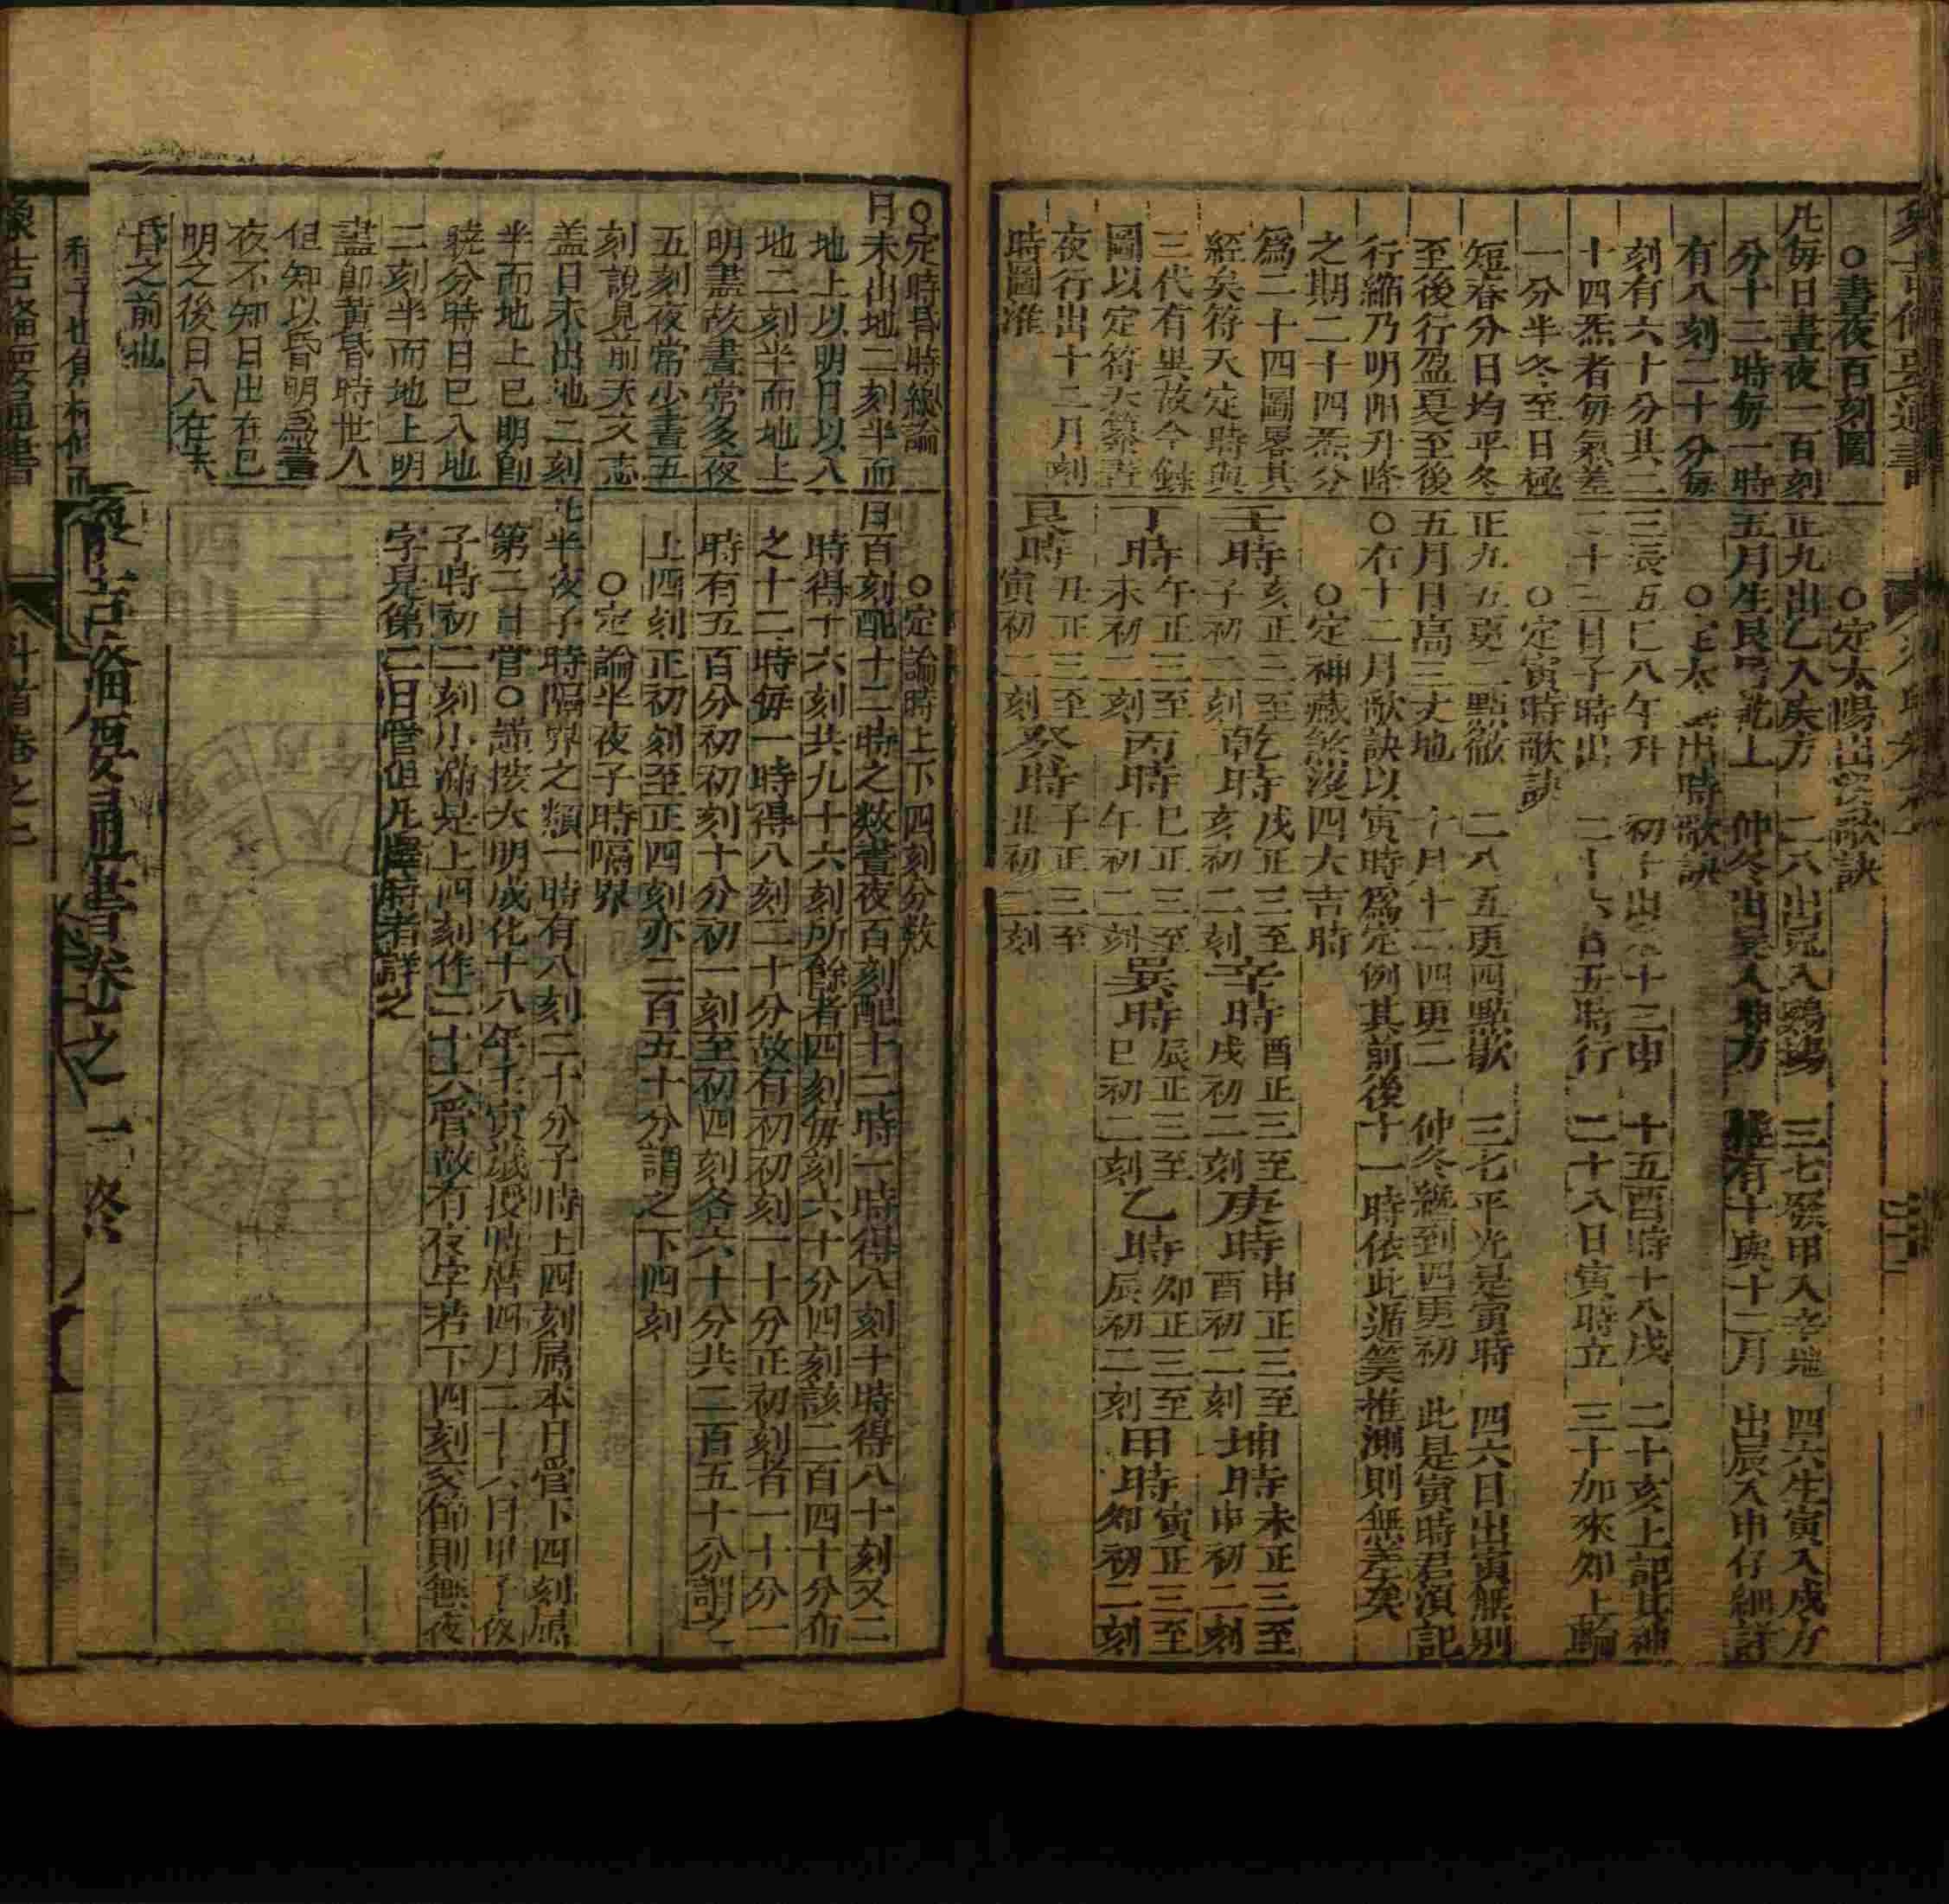 ○晝夜百刻圖
凡每日晝夜一百刻
分十二時每一時
有八刻二十分每
刻有六十分其二
十四炁者每氣差
一分半冬至日極
短春分日均平冬
至後行盈夏至後
行縮乃明陽升降
之期二十四炁分
爲二十四圖畧其
經矣符天定時與
三代有異故今錄
圖以定符天纂晝
夜行出十二月刻
時圖准
○定太陽出沒歌訣
正九出乙入庚方 二八出兎入鷄塲 三七發甲入辛地 四六生寅入戌方
五月生艮歸乾上 仲冬出巽入坤方 惟有十與十二月 出辰入申仔細詳
○定太 出時歌訣
三辰五巳八午升 初十出未十三申 十五酉時十八戌 二十亥上記其神
二十三日子時出 二十六日丑時行 二十八日寅時立 三十加來卯上輪
○定寅時歌訣
正九五更二點徹 二八五更四點歇 三七平光是寅時 四六日出寅無別
五月日高三丈地 十月十二四更二 仲冬纔到四更初 此是寅時君須記
○右十二月歌訣以寅時爲定例其前後十一時依此遁筭推測則無差矣
○定神藏煞沒四大吉時
壬時亥正三至子初二刻 乾時戌正三至亥初二刻 辛時酉正三至戌初二刻 庚時申正三至酉初二刻 坤時未正三至申初二刻
丁時午正三至未初二刻 丙時巳正三至午初二刻 巽時辰正三至巳初二刻 乙時卯正三至辰初二刻 甲時寅正三至卯初二刻
艮時丑正三至寅初二刻 癸時子正三至丑初二刻
○定時昏時總論
日未出地二刻半而
地上以明日以入
地二刻半而地上
明盡故晝常多夜
五刻夜常少晝五
刻說見前天文志
盖日未出地二刻
半而地上已明創
曉分時日已入地
二刻半而地上明
盡卽黃昏時世人
但知以昏明爲晝
夜不知日出在已
明之後日入在未
昏之前也
○定論時上下四刻分數
日百刻配十二時之數晝夜百刻配十二時一時得八刻十時得八十刻又二
時得十六刻共九十六刻所餘者四刻每刻六十分四刻該二百四十分布
之十二時每一時得八刻二十分故有初初刻一十分正初刻者一十分一
時有五百分初初刻十分初一刻至初四刻各六十分共二百五十分謂之
上四刻正初刻至正四刻亦二百五十分謂之下四刻
○定論半夜子時隔界
半夜子時隔界之類一時有八刻二十分子時上四刻屬本日管下四刻屬
第二日管○謹按大明成化十八年壬寅歲授時曆四月二十六日甲子夜
子時初二刻小滿是上四刻作二十六管故有夜字若下四刻交節則無夜
字是第二日管但凡擇時者詳之
象吉備要通書卷之一終